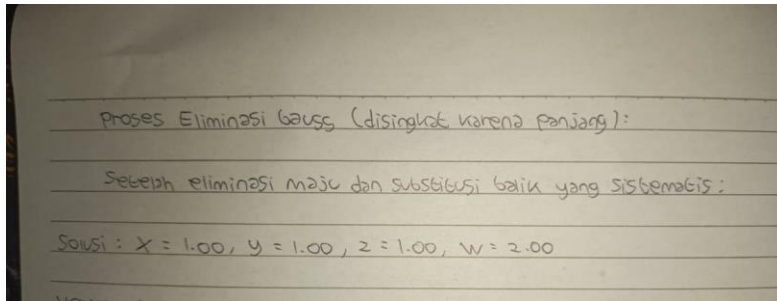 Proses Eliminasi Gauss (disingkat karena panjang):
Setelah eliminasi maju dan substitusi balik yang sistematis:
Solusi: X = 1.00, y = 1.00, z = 1.00, W = 2.00